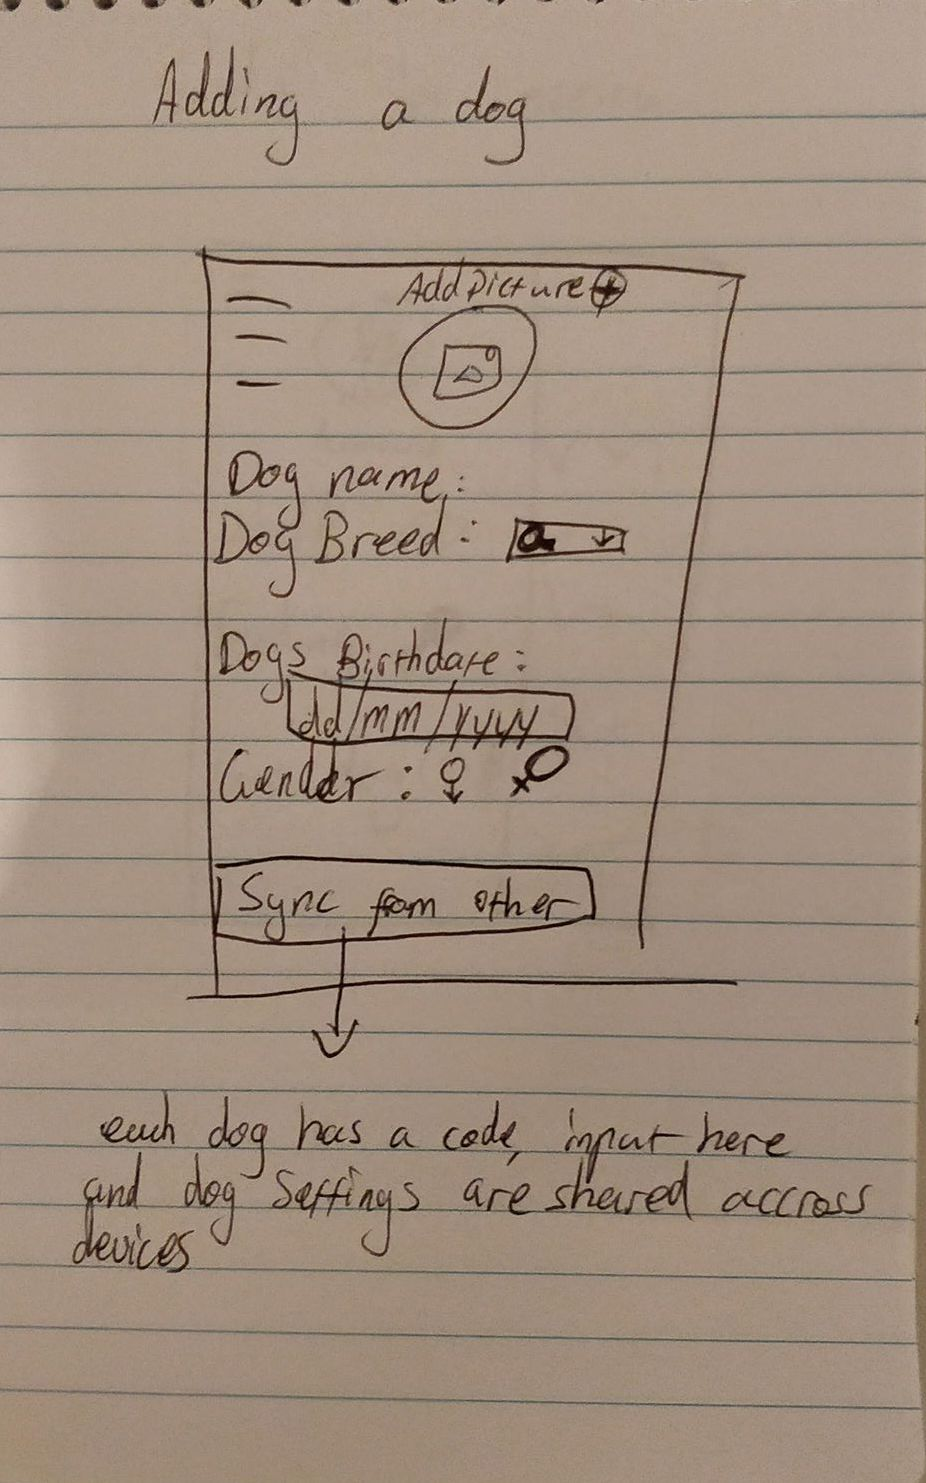 Adding a dog
Add Picture
Dog name:
Dog Breed:
Dogs Birthdate:
dd/mm/yyyy
Gender: ♀ ♀
Sync from other
each dog has a code, input here
and dog settings are shared accross
devices